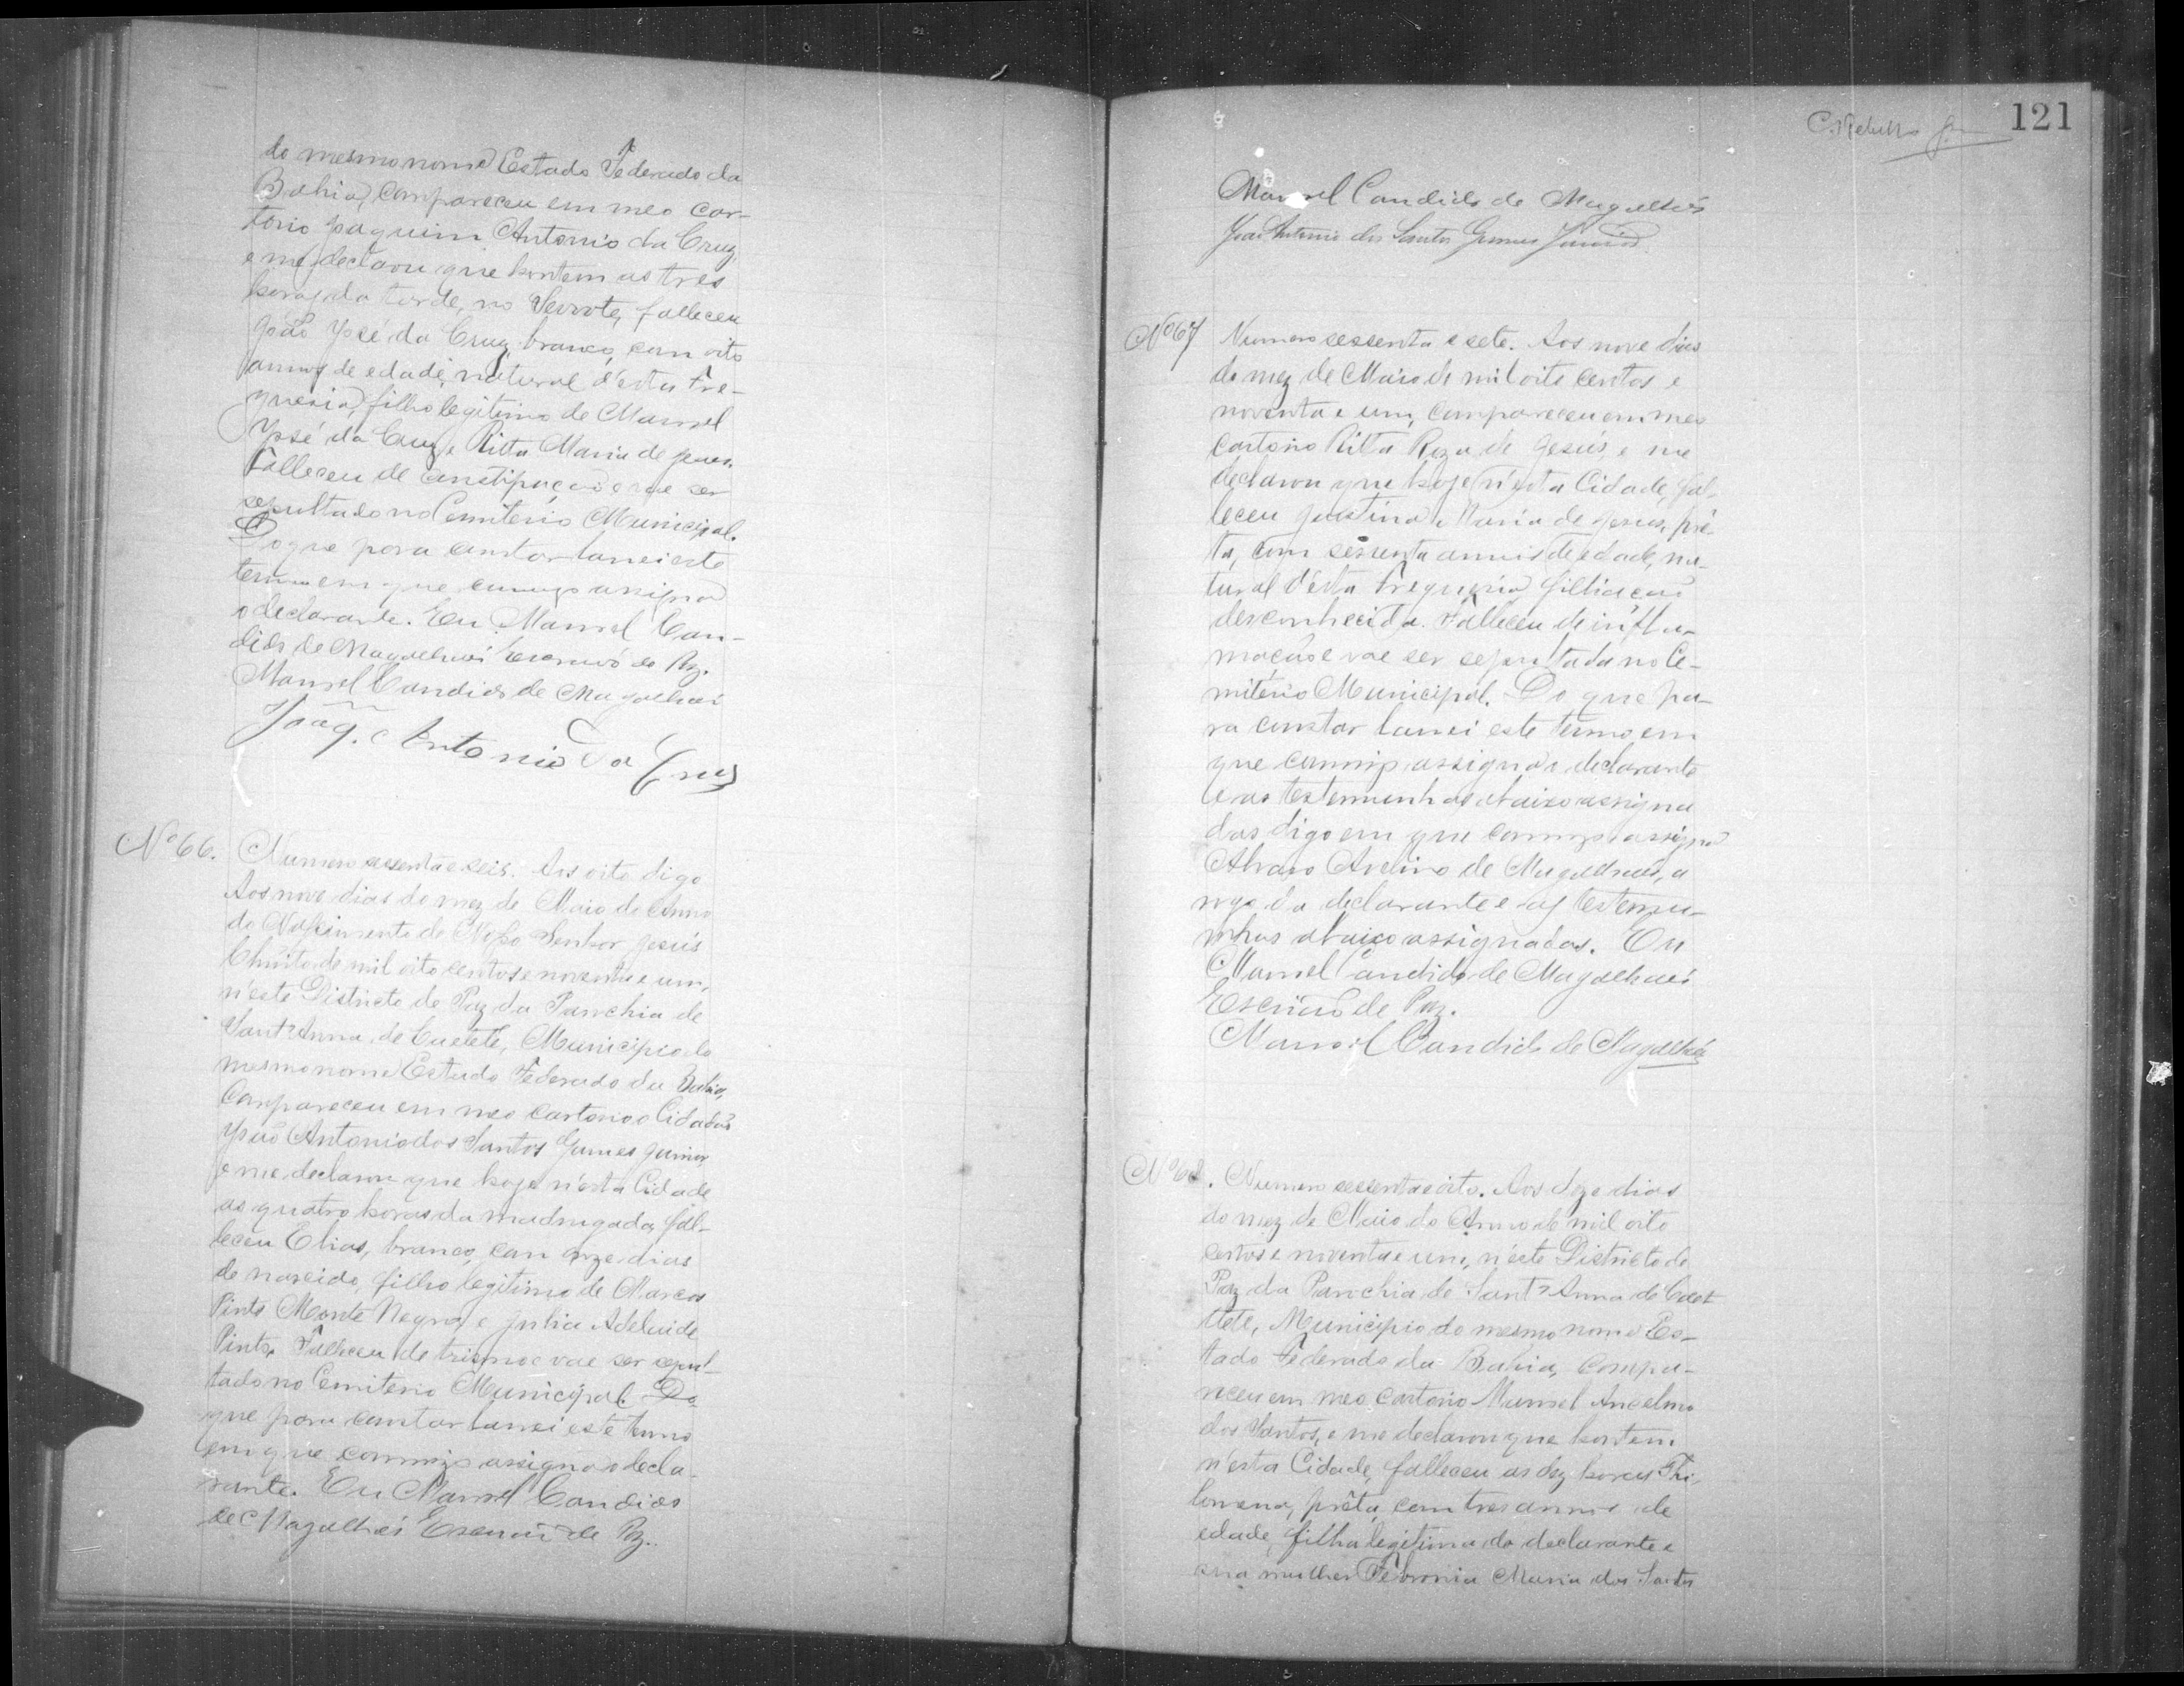 do mesmo nome Estado Federado da
Bahia, compareceu em meo car-
torio Joaquim Antonio da Cruz,
e me declarou que hontem as tres
horas da tarde, no Serrote, falleceu
João José da Cruz, branco, com oito
annos de edade, natural d'esta Fre-
guesia, filho legitimo de Manoel
José da Cruz e Ritta Maria de Jesus.
Falleceu de constipação e vae ser
sepultado no Cemiterio Municipal.
Do que para constar lancei este
termo em que commigo assigna
o declarante. Eu Manoel Can-
dido de Magalhães Escrivão de Paz.
Manoel Candido de Magalhães
Joaq. Antonio da Cruz
Nº 66. Numero sessenta e seis. Aos oito digo
Aos nove dias do mez de Maio do Anno
do Nascimento de Nosso Senhor Jesús
Christo de mil oito centos e noventa e um,
n'este Districto de Paz da Parochia de
Sant'Anna de Caeteté, Municipio do
mesmo nome Estado Federado da Bahia,
Compareceu em meo cartorio o Cidadão
João Antonio dos Santos Gumes Junior,
e me declarou que hoje n'esta Cidade
as quatro horas da madrugada, fal-
leceu Elias, branco, com onze dias
de nascido, filho legitimo de Marcos
Pinto Monte Negro, e Julia Adelaide
Pinto. Falleceu de trismo e vae ser sepul-
tado no Cemiterio Municipal. Do
que para constar lancei este termo
em que commigo assigna o decla-
rante. Eu Manoel Candido
de Magalhães Escrivão de Paz.
121
Manoel Candido de Magalhães
João Antonio dos Santos Gumes Junior.
Nº 67 Numero sessenta e sete. Aos nove dias
do mez de Maio de mil oito centos e
noventa e um, compareceu em meo
cartorio Ritta Roza de Jesús, e me
declarou que hoje n'esta Cidade, fal-
leceu Justina Maria de Jesus, prê-
ta, com sessenta annos de edade, na-
tural d'esta Freguesia filiação
desconhecida. Falleceu de infla-
mação e vae ser sepultada no Ce-
mitério Municipal. Do que pa-
ra constar lancei este termo em
que commigo assigna a declarante
e as testemunhas abaixo assigna
das digo em que commigo assigna
Alvaro Avelino de Magalhães, a
rogo da declarante e as testemu-
nhas abaixo assignadas. Eu
Manoel Candido de Magalhães
Escrivão de Paz.
Manoel Candido de Magalhães
Nº 68. Numero sessenta e oito. Aos doze dias
do mez de Maio do Anno de mil oito
centos e noventa e um, n'este Districto de
Paz da Parochia de Sant'Anna de Caet
teté, Municipio do mesmo nome Es-
tado Federado da Bahia, Compa-
receu em meo cartorio Manoel Ancelmo
dos Santos, e me declarou que hontem
n'esta Cidade, falleceu as dez horas Phi-
lomena, prêta, com tres annos de
edade, filha legitima do declarante e
sua mulher Febronia Maria dos Santos